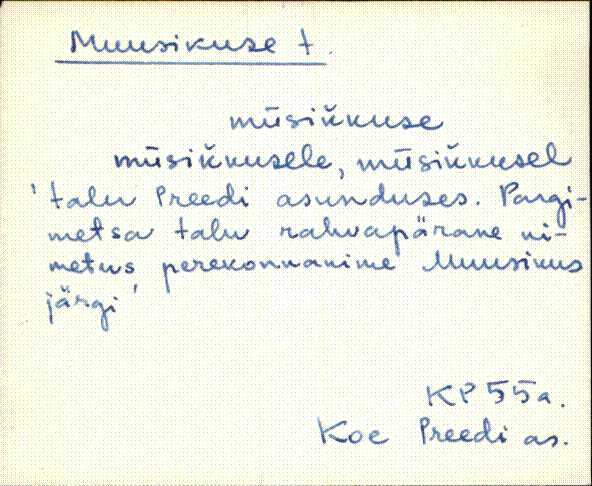 Muusikuse t.
mūsik̆kuse
mūsik̆kusele, mūsik̆kusel
'talu Preedi asunduses. Pargi-
metsa talu rahvapärane ni-
metus perekonnanime Muusikus
järgi'
KP 55a.
Koe Preedi as.